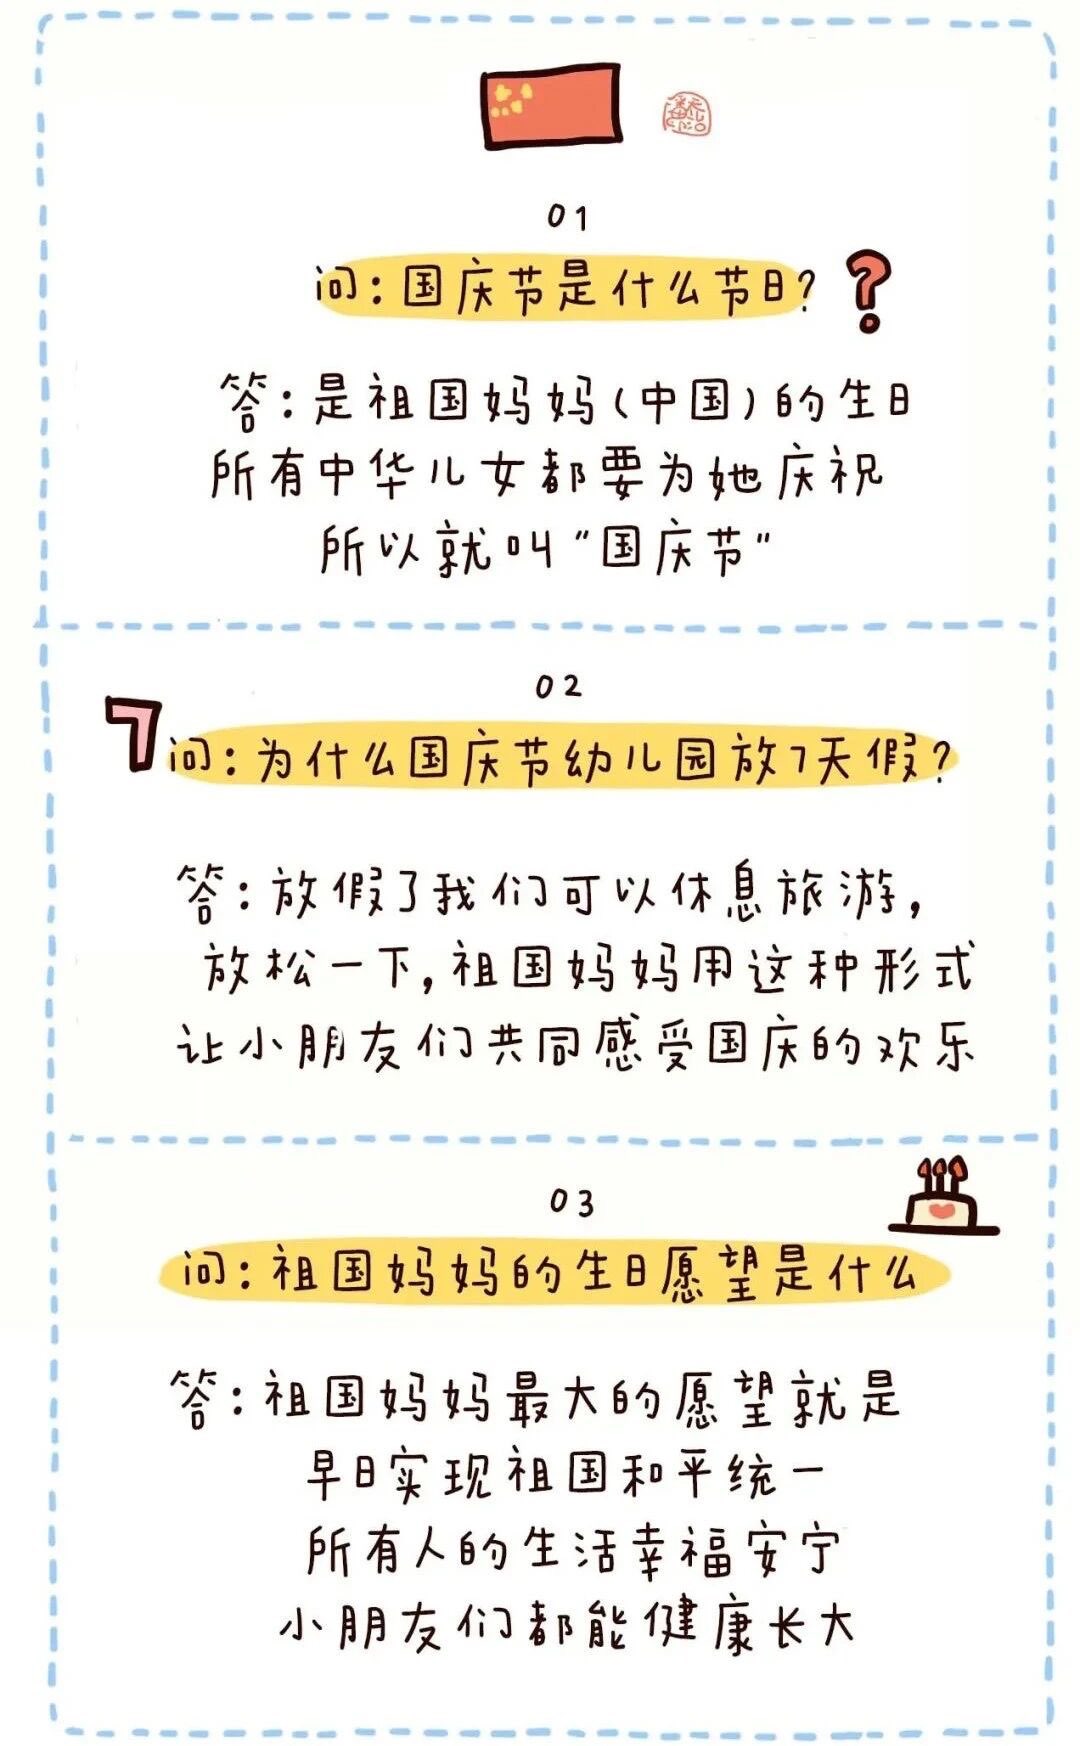 01
问:国庆节是什么节日?
答:是祖国妈妈(中国)的生日
所有中华儿女都要为她庆祝
所以就叫"国庆节"
02
7
问:为什么国庆节幼儿园放7天假?
答:放假了我们可以休息旅游,
放松一下,祖国妈妈用这种形式
让小朋友们共同感受国庆的欢乐
03
问:祖国妈妈的生日愿望是什么
答:祖国妈妈最大的愿望就是
早日实现祖国和平统一
所有人的生活幸福安宁
小朋友们都能健康长大